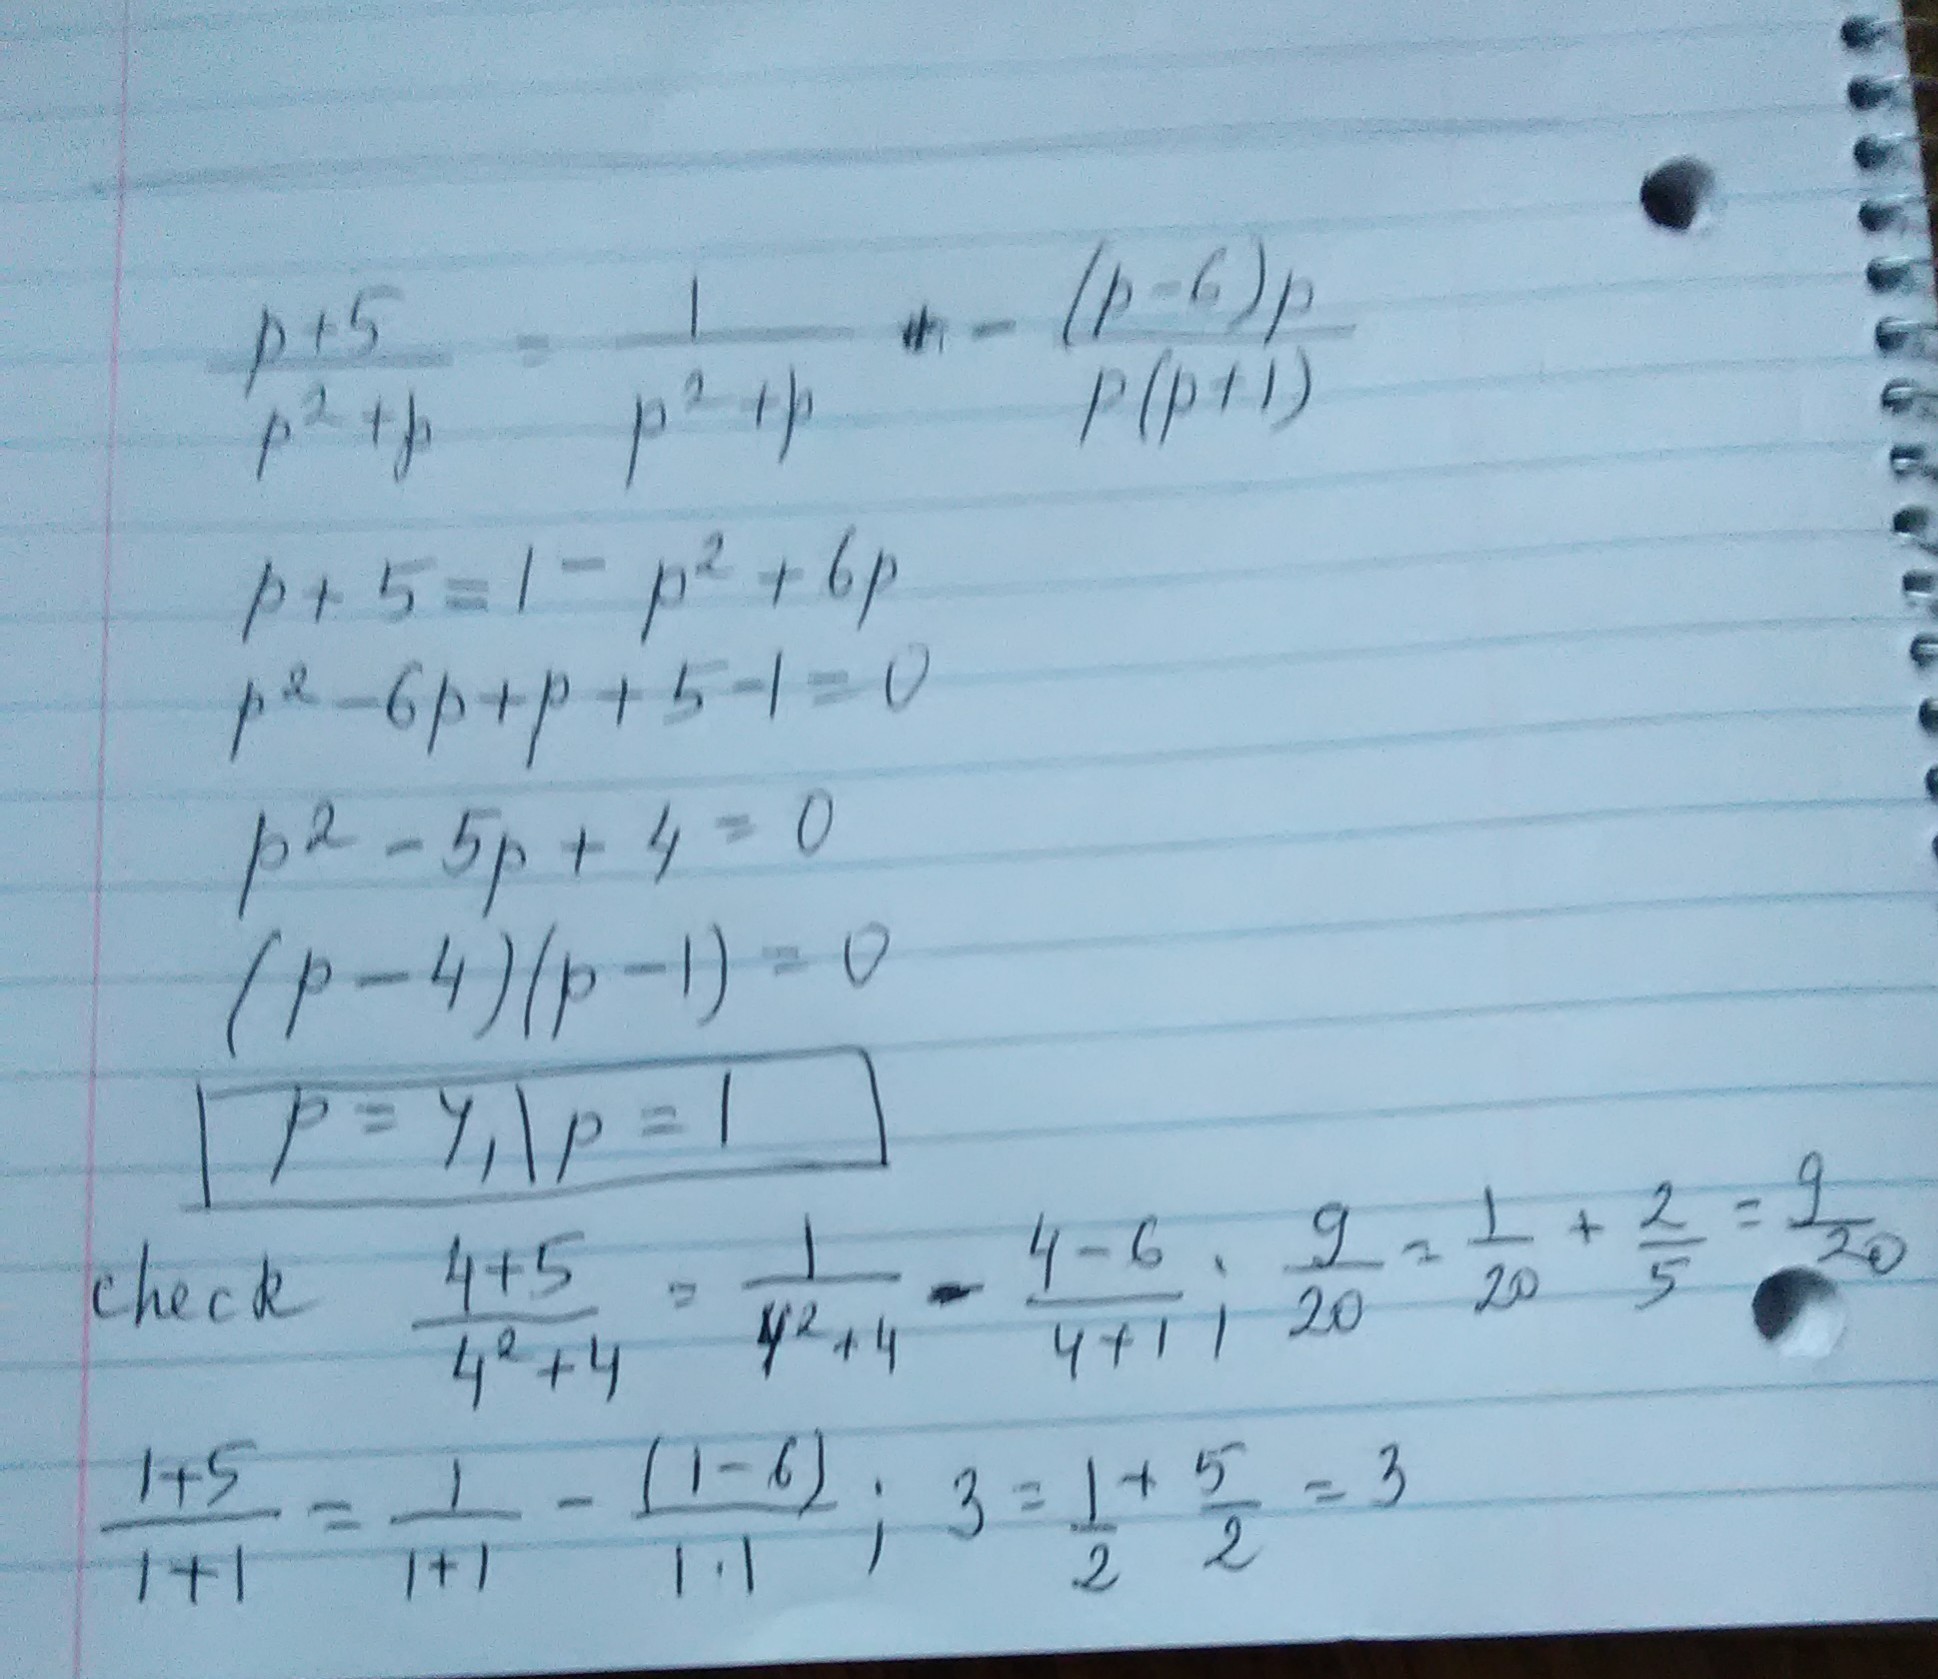 (p+5)/(p²+p) = 1/(p²+p) - ((p-6)p)/(p(p+1))
p+5=1-p²+6p
p²-6p+p+5-1=0
p²-5p+4=0
(p-4)(p-1)=0
p=4, p=1
check (4+5)/(4²+4) = 1/(4²+4) - (4-6)/(4+1) ; 9/20 = 1/20 + 2/5 = 9/20
(1+5)/(1+1) = 1/(1+1) - (1-6)/(1·1) ; 3 = 1/2 + 5/2 = 3